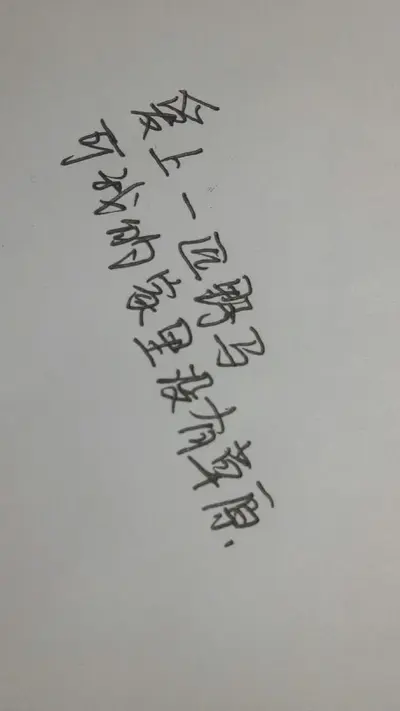 爱上一匹野马
可我的家里没有草原.